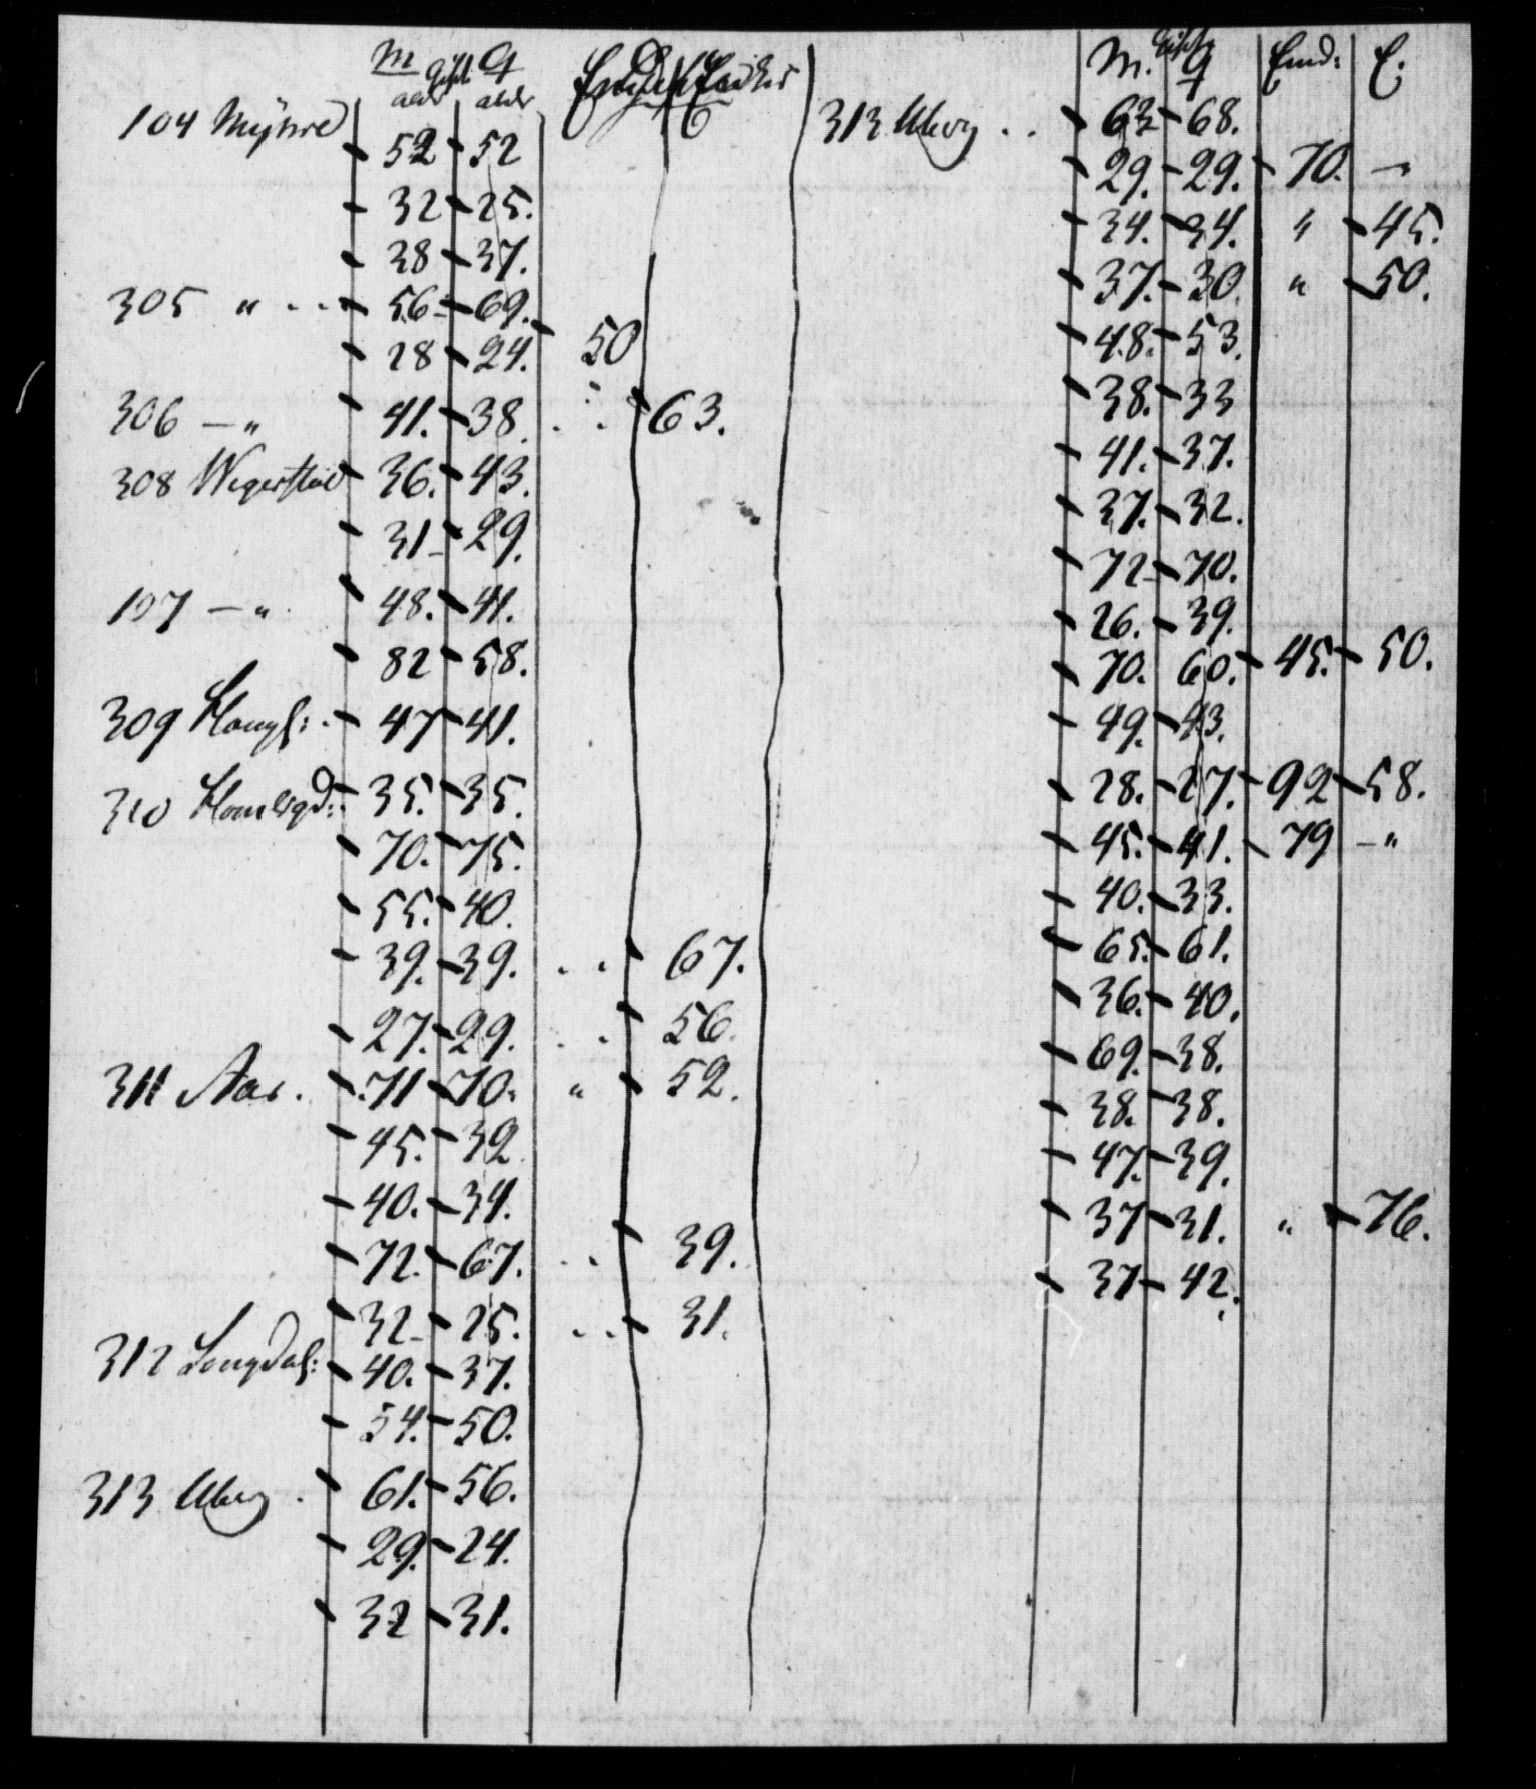 M Gift Q Enkem Enker
alder alder
104 Myhre 52 52
32 25.
38 37.
305 " 56 69.
28 24. 50
306 — " 41. 38. 63.
308 Wegerstad 36. 43.
31 29.
107 — " 48. 41.
82 58.
309 Haugl: 47 41.
310 35. 35.
70. 75.
55. 40.
39. 39. 67.
27. 29. 56.
311 Aas. 71 70. " 52.
45. 32
40. 34.
72. 67. 39.
32 25. 31.
312 Longdal: 40. 37.
54. 50.
313 Uberg 61. 56.
29. 24.
32 31.
M. Gift Q Emd: E.
313 Uberg 63 68.
29. 29. 70. "
34. 34. " 45.
37. 30. " 50.
48. 53.
38. 33
41. 37.
37. 32.
72 70.
26. 39.
70. 60. 45. 50.
49. 43.
28. 27. 92 58.
45. 41. 79 — "
40. 33.
65. 61.
36. 40.
69. 38.
38. 38.
47. 39.
37 31. " 76.
37 42.